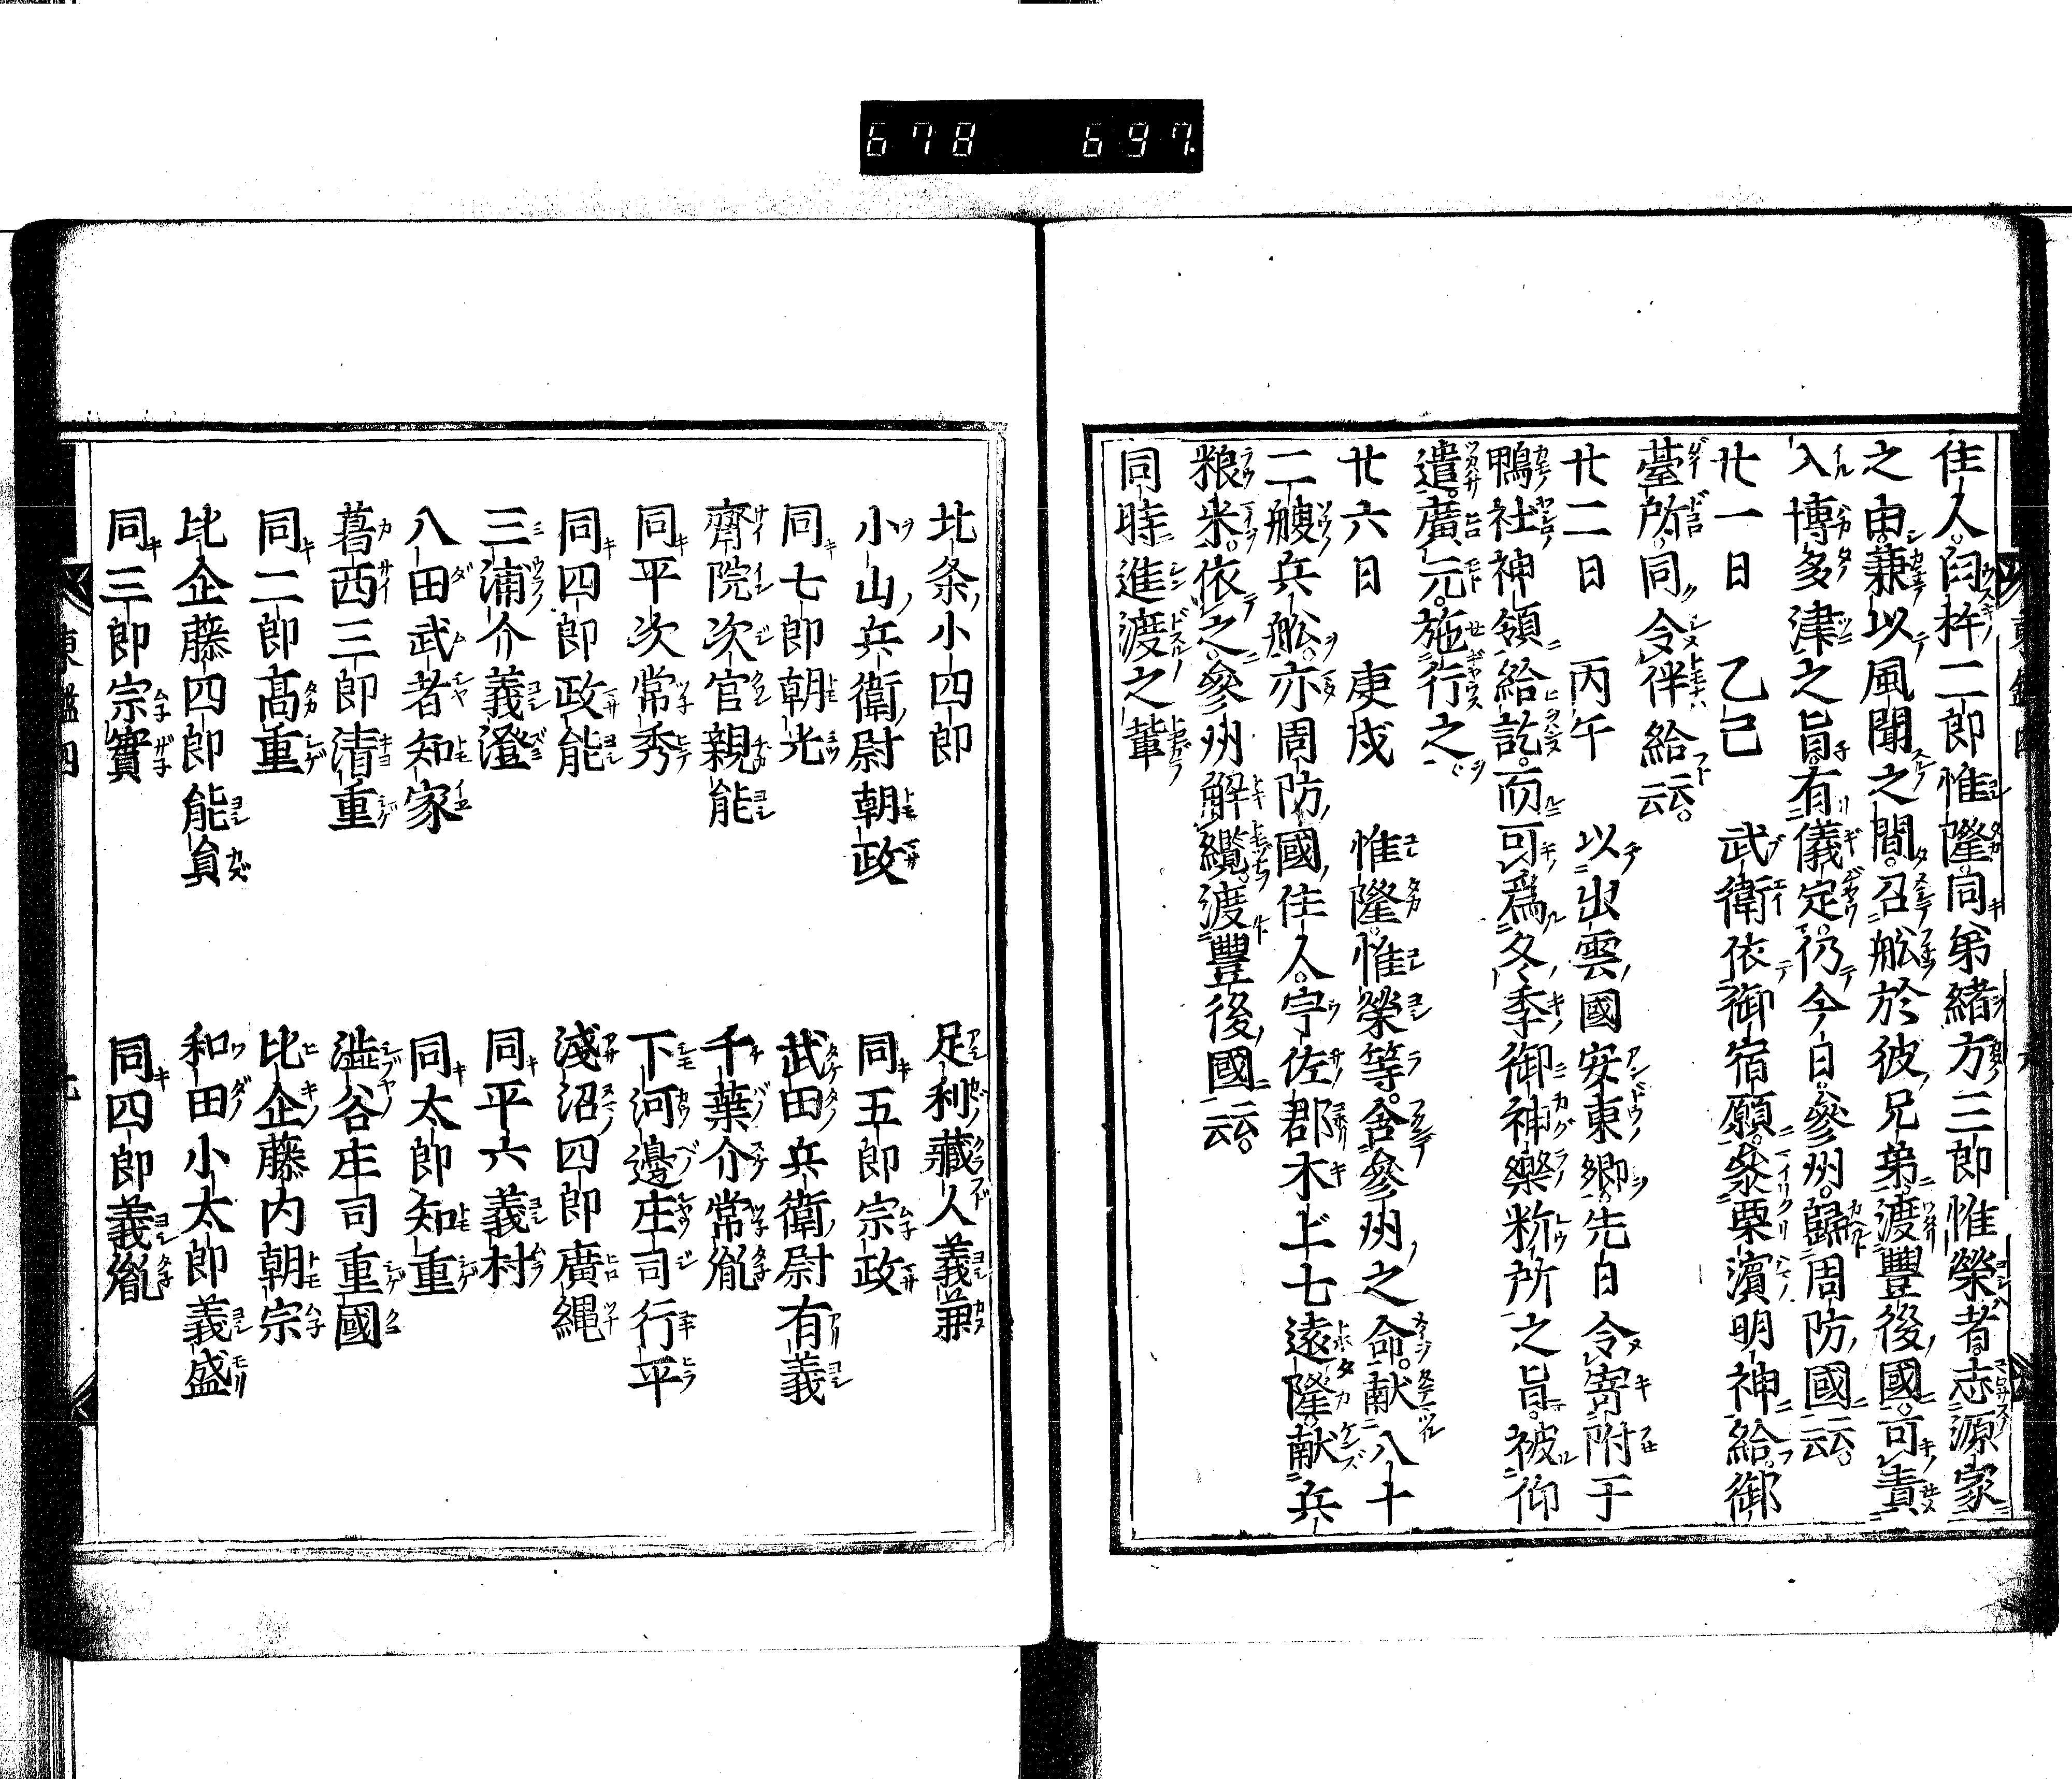 678 697
住人臼杵二郎惟隆同弟緒方三郎惟榮者志源家
之由兼以風聞之間召舩於彼兄弟渡豐後國可責
入博多津之旨有儀定仍今日參州歸周防國云云
廿一日 乙巳 武衛依御宿願參栗濱明神給御
臺所同令伴給云云
廿二日 丙午 以出雲國安東郷先日令寄附于
鴨社神領給訖而可爲冬季御神樂粉所之旨被仰
遣廣元施行之
廿六日 庚戌 惟隆惟榮等含參州之命献八十
二艘兵舩亦周防國住人宇佐郡木上七遠隆献兵
粮米依之參州解纜渡豐後國云云
同時進渡之輩
北条小四郎 足利藏人義兼
小山兵衛尉朝政 同五郎宗政
同七郎朝光 武田兵衛尉有義
齋院次官親能 千葉介常胤
同平次常秀 下河邊庄司行平
同四郎政能 淺沼四郎廣縄
三浦介義澄 同平六義村
八田武者知家 同太郎知重
葛西三郎清重 澁谷庄司重國
同二郎髙重 比企藤内朝宗
比企藤四郎能員 和田小太郎義盛
同三郎宗實 同四郎義胤